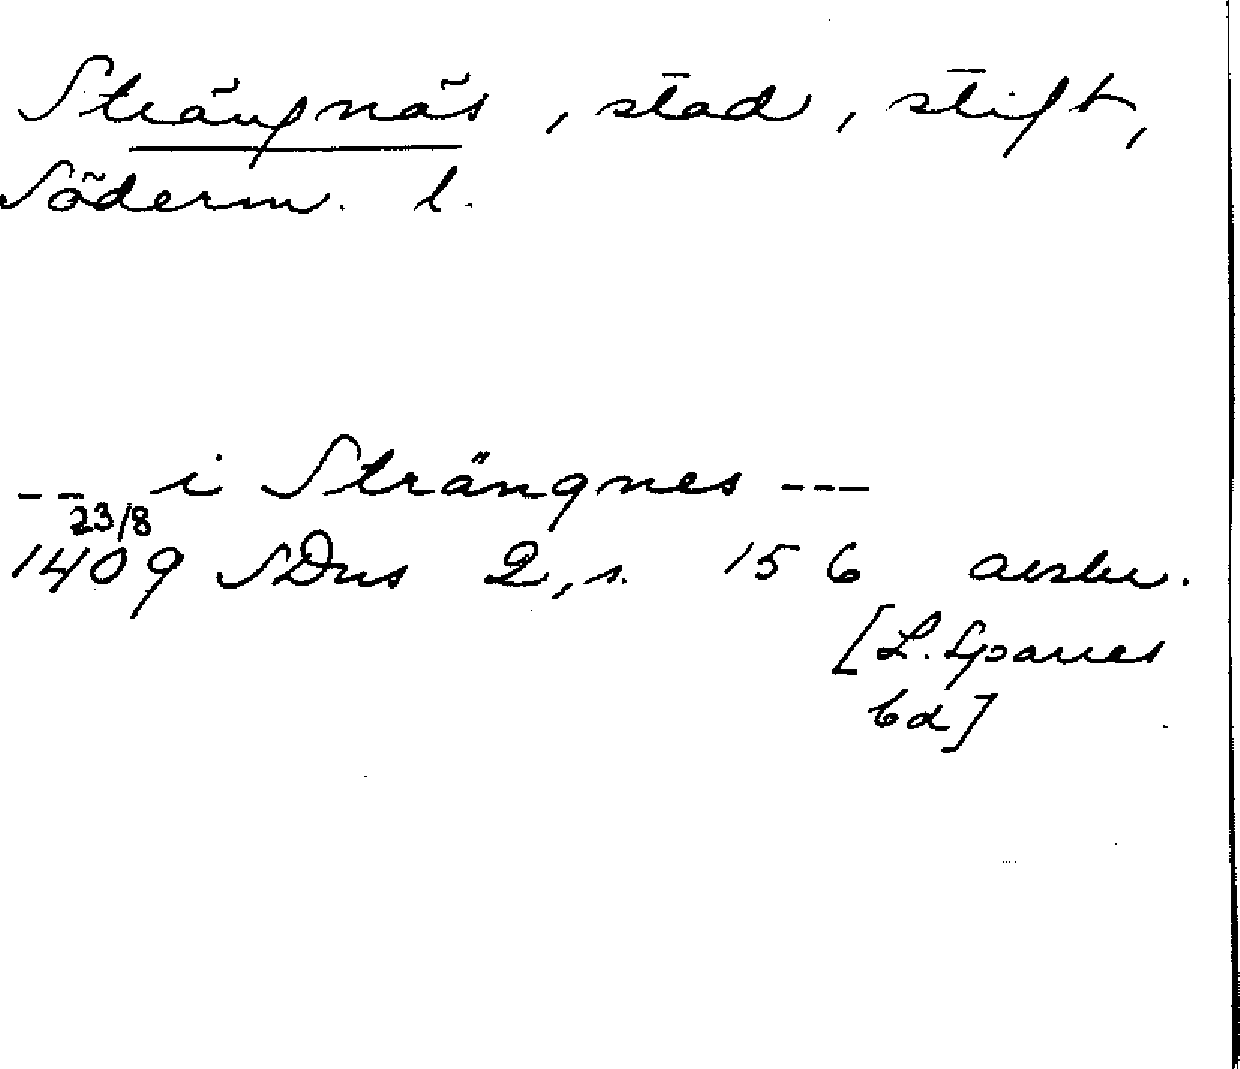 Strängnäs, stad, stift,
Söderm. l.
-- i Strängnes ---
23/8
1409 SDns 2, s. 156 avskr.
[L. Sparres
bd]